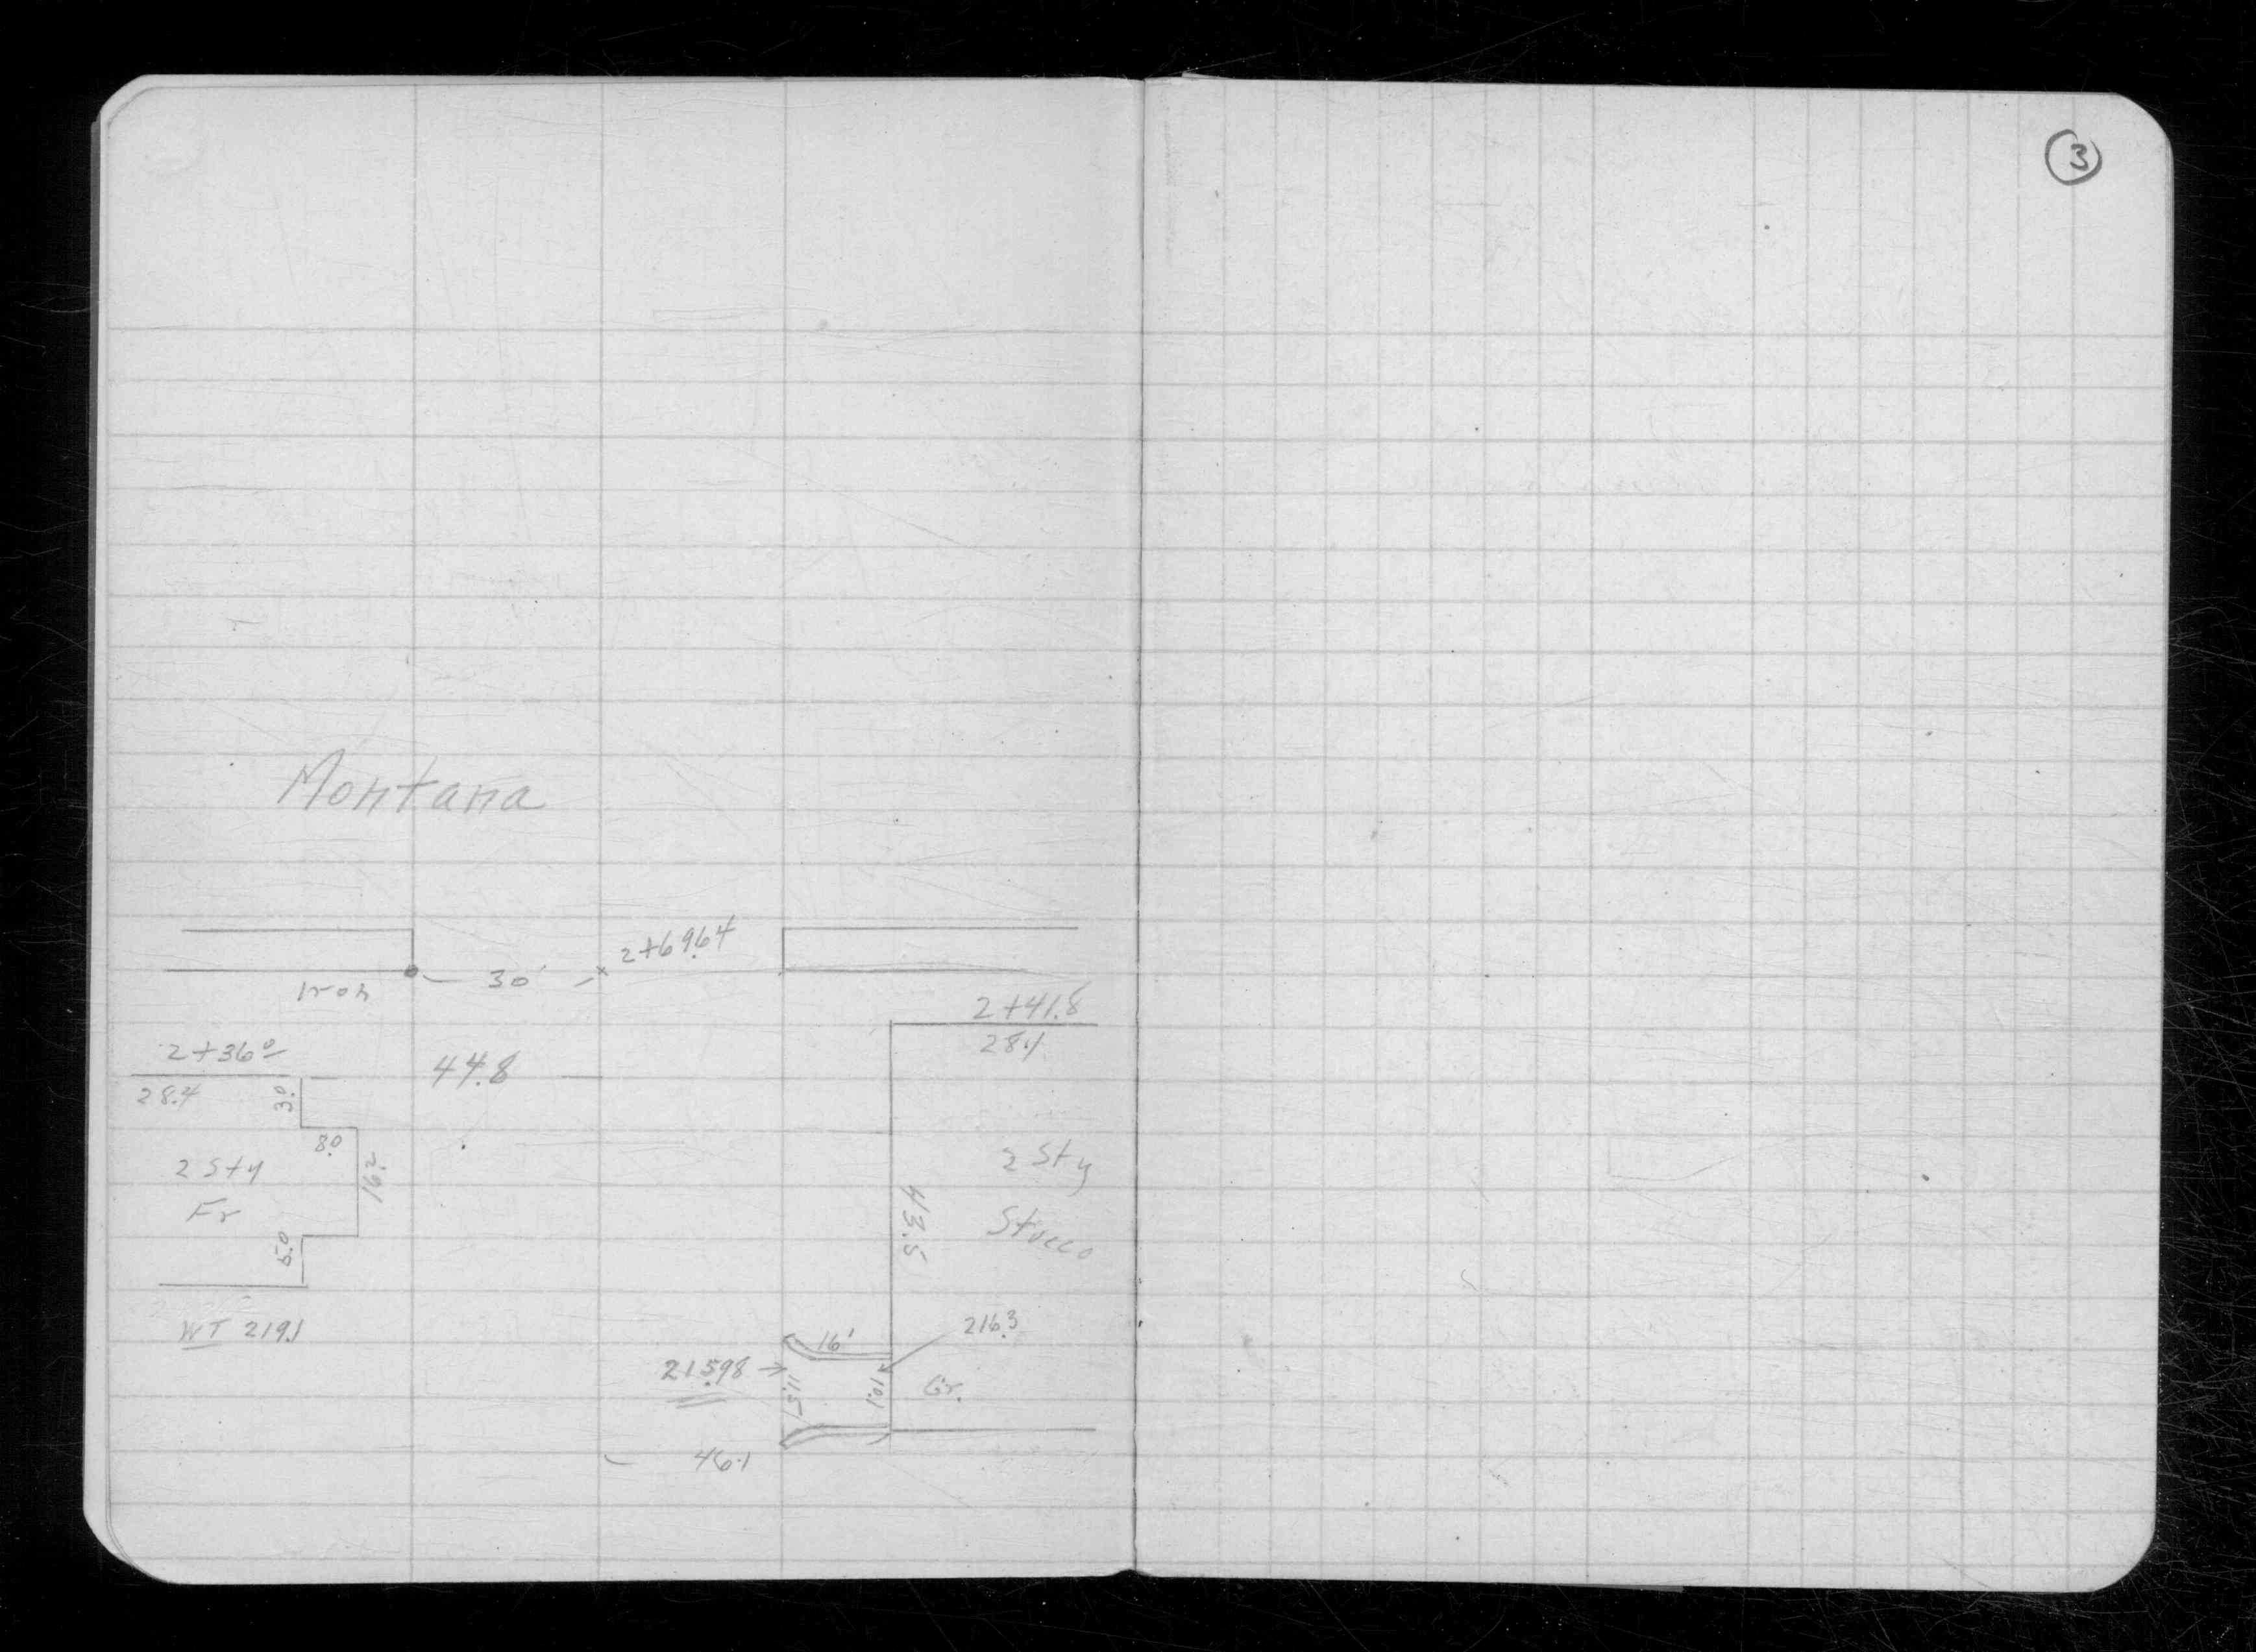 3
Montana
2+69.64
30'
Iron
2+41.8
28.1
2+36.0
44.8
28.4
3.0
8.0
2 Sty
Fr
16.2
5.0
2 Sty
Stucco
43.5
WT 219.1
216.3
16'
215.98
11.5
10.1
Gr.
46.1